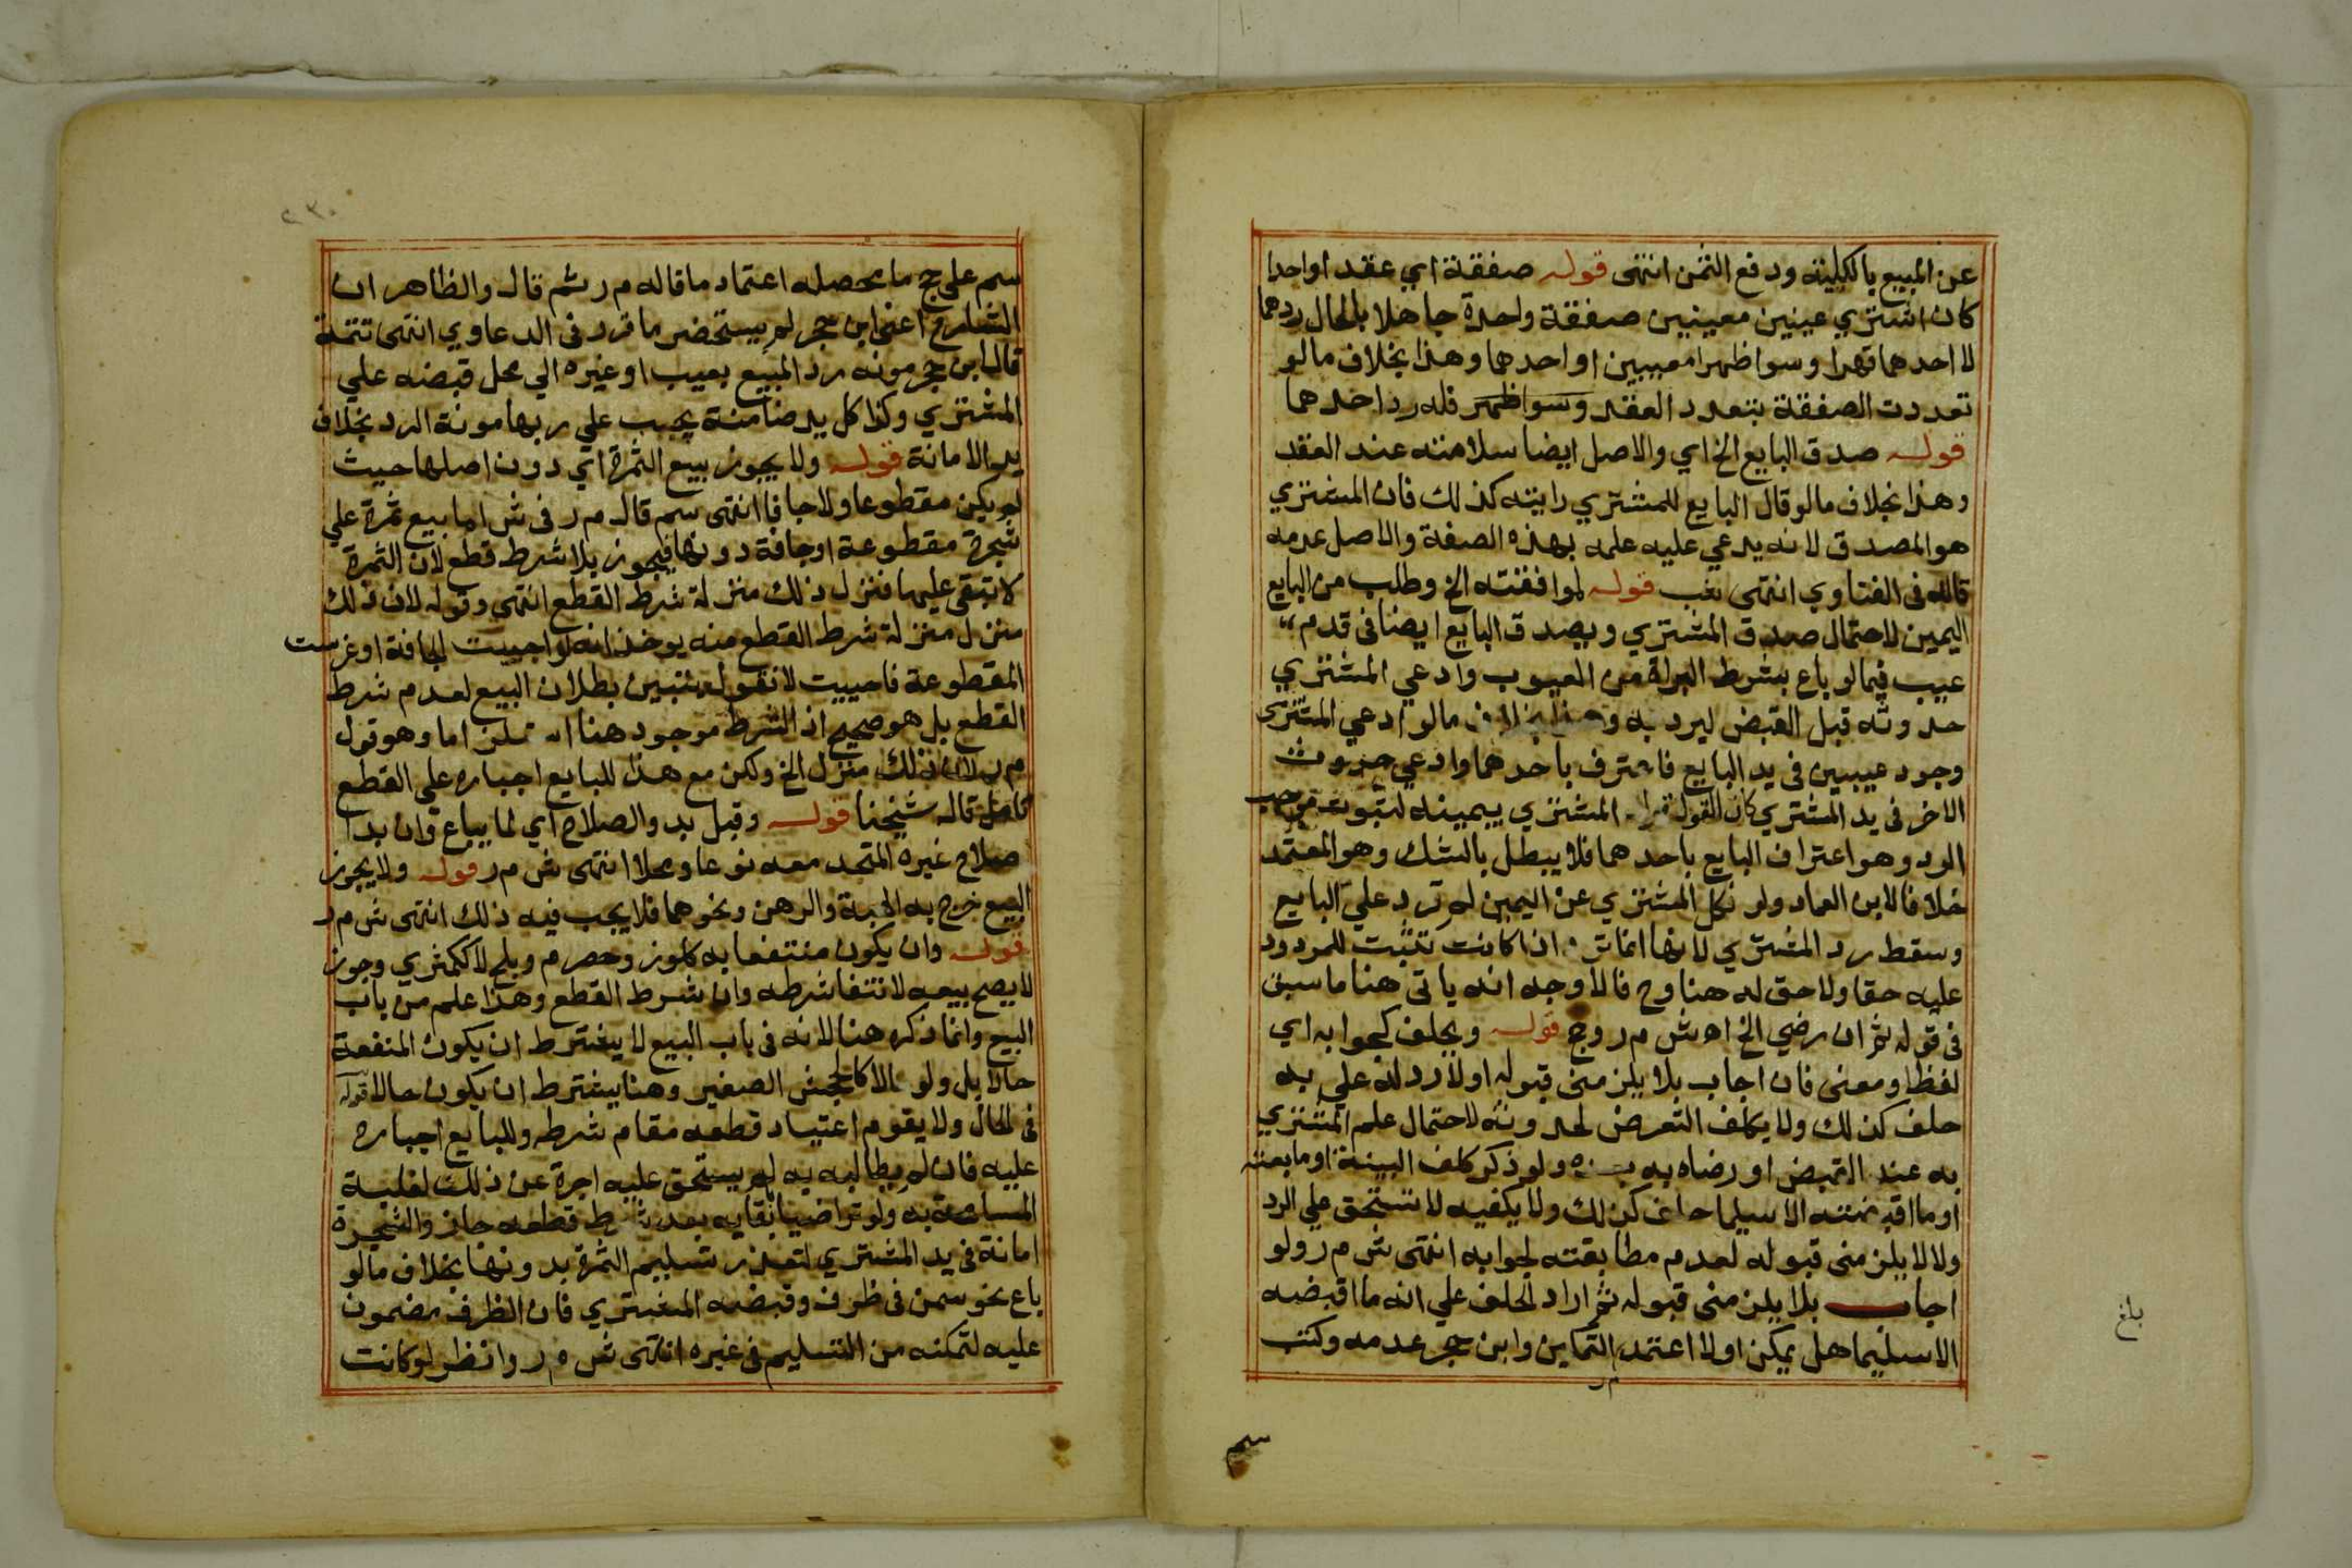 عن المبيع بالكلية ودفع الثمن انتهى قوله صفقة اي عقد اواحدا
كان اشتري عينين معيبين صفقة واحدة جاهلا بالحال ردهما
لا احدهما قهرا وسوا ظهرا معيبين او احدهما وهذا بخلاف مالو
تعددت الصفقة بتعدد العقد وسوا ظهر فله رد احدهما
قوله صدق البايع الخ اي والاصل ايضا سلامته عند العقد
وهذا بخلاف مالو قال البايع للمشتري رايته كذلك فان المشتري
هو المصدق لانه يدعي عليه علمه بهذه الصفة والاصل عدمه
قاله في الفتاوي انتهى قوله لموافقته الخ وطلب من البايع
اليمين لاحتمال صدق المشتري ويصدق البايع ايضا في قدم
عيب فيما لو باع بشرط البراة من العيوب وادعي المشتري
حدوثه قبل القبض ليرد به وهذا بخلاف مالو ادعي المشتري
وجود عيبين في يد البايع فاعترف باحدهما وادعي حدوث
الاخر في يد المشتري كان القول قول المشتري بيمينه لثبوت موجب
الرد وهو اعتراف البايع باحدهما فلا يبطل بالشك وهو المعتمد
خلافا لابن العماد ولو نكل المشتري عن اليمين لم ترد علي البايع
وسقط رد المشتري لانها انما ترد اذا كانت تثبت للمردود
عليه حقا ولا حق له هنا وح فالاوجه انه ياتى هنا ما سبق
في قوله ثم ان رضي الخ اه ش م ر وج قوله ويحلف كجوابه اي
لفظا ومعنى فان اجاب بلا يلزمنى قبوله او لا رد له علي به
حلف كذلك ولا يكلف التعرض لحدوثه لاحتمال علم المشتري
به عند القبض او رضاه به بعده ولو ذكر كلف البينة او ما بعته
او ما اقبضته الا سليما حلف كذلك ولا يكفيه لا تستحق علي الرد
ولا لا يلزمنى قبوله لعدم مطابقته لجوابه انتهى ش م ر ولو
اجاب بلا يلزمنى قبوله ثم اراد الحلف علي انه ما اقبضه
الا سليما هل يمكن اولا اعتمد م ر التمكين وابن حجر عدمه وكتب
سم
بلغ
٢٣٠
سم على ج ما محصله اعتماد ما قاله م ر ثم قال والظاهر ان
الشارح اعنى ابن حجر لم يستحضر ما قرر في الدعاوي انتهى تتمة
قال ابن حجر مونه رد المبيع بعيب او غيره الي محل قبضه علي
المشتري وكذا كل يد ضامنة يجب علي ربها مونة الرد بخلاف
يد الامانة قوله ولا يجوز بيع الثمرة اي دون اصلها حيث
لم يكن مقطوعا ولا جافا انتهى سم قال م ر في ش اما بيع ثمرة علي
شجرة مقطوعة او جافة دونها فيجوز بلا شرط قطع لان الثمرة
لا تبقى عليها فنزل ذلك منزلة شرط القطع انتهى وقوله لان ذلك
منزل منزلة شرط القطع منه يوخذ انه لو احييت الجافة او غرست
المقطوعة فاحييت لا نقول بتبين بطلان البيع لعدم شرط
القطع بل هو صحيح اذ الشرط موجود هنا اما وهو قول
م ر لان ذلك منزل الخ ولكن مع هذا للبايع اجباره على القطع
قاله شيخنا قوله وقبل بدو الصلاح اي لما يباع وان بدا
صلاح غيره المتحد معه نوعا ومحلا انتهى ش م ر قوله ولا يجوز
البيع خرج به الهبة والرهن ونحوهما فلا يجب فيه ذلك انتهى ش م ر
قوله وان يكون منتفعا به كلوز وحصرم وبلح لا ككمثري وجوز
لا يصح بيعه لانتفا شرطه وان شرط القطع وهذا علم من باب
البيع وانما ذكره هنا لانه في باب البيع لا يشترط ان يكون المنفعة
حالا بل ولو مالا كالجحش الصغير وهنا يشترط ان يكون حالا قوله
في الحال ولا يقوم اعتياد قطعه مقام شرطه وللبايع اجباره
عليه فان لم يطالبه به لم يستحق عليه اجرة عن ذلك لغلبة
المسامحة به ولو تراضيا بابقايه بعد شرط قطعه جاز والشجرة
امانة في يد المشتري لتعذر تسليم الثمرة بدونها بخلاف مالو
باع نحو سمن في ظرف وقبضه المشتري فان الظرف مضمون
عليه لتمكنه من التسليم في غيره انتهى ش م ر وانظر لو كانت